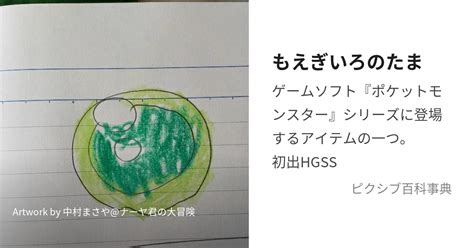 もえぎいろのたま
ゲームソフト『ポケットモ
ンスター』シリーズに登場
するアイテムの一つ。
初出HGSS
ピクシブ百科事典
Artwork by 中村まさや@ナーヤ君の大冒険